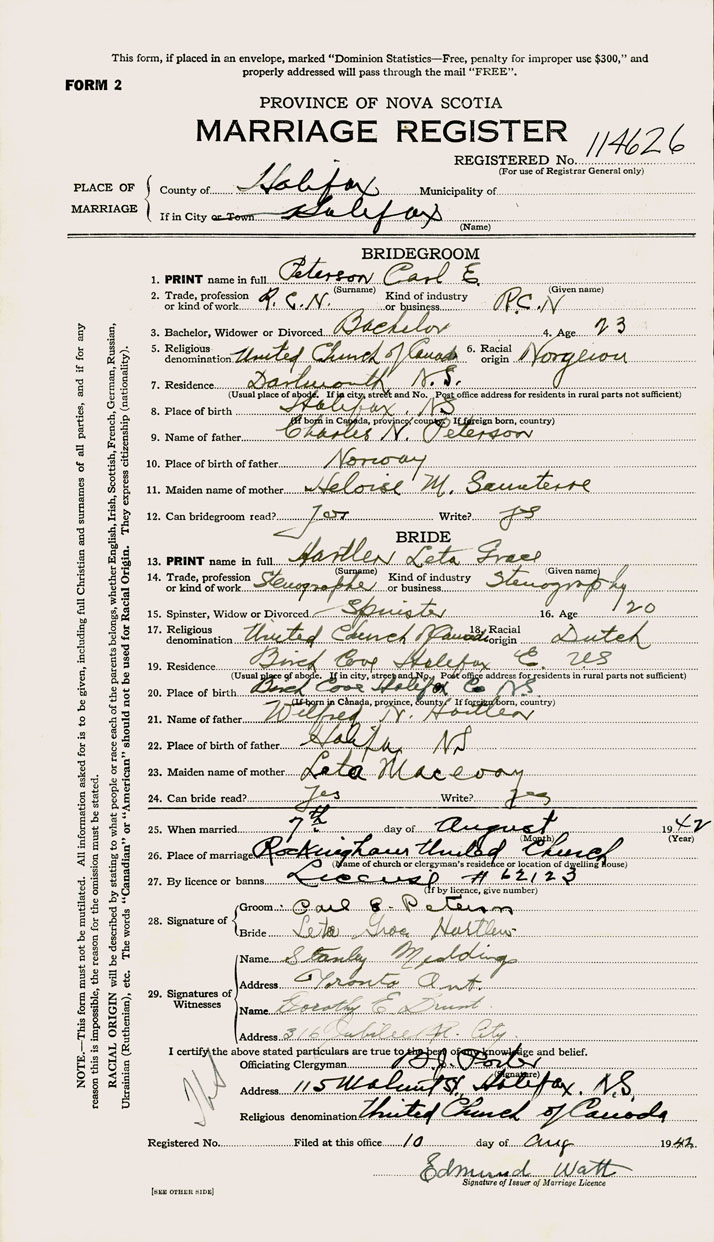 This form, if placed in an envelope, marked "Dominion Statistics—Free, penalty for improper use $300," and
properly addressed will pass through the mail "FREE".
FORM 2
PROVINCE OF NOVA SCOTIA
MARRIAGE REGISTER
REGISTERED No. 114626
(For use of Registrar General only)
PLACE OF MARRIAGE
County of Halifax Municipality of
If in City or Town Halifax
(Name)
BRIDEGROOM
1. PRINT name in full Peterson Carl E.
(Surname) (Given name)
2. Trade, profession or kind of work R.C.N. Kind of industry or business R.C.N
3. Bachelor, Widower or Divorced Bachelor 4. Age 23
5. Religious denomination United Church of Canada 6. Racial origin Norgeion
7. Residence Dartmouth N.S.
(Usual place of abode. If in city, street and No. Post office address for residents in rural parts not sufficient)
8. Place of birth Halifax. NS
(If born in Canada, province, county. If foreign born, country)
9. Name of father Charles N. Peterson
10. Place of birth of father Norway
11. Maiden name of mother Heloise M.
12. Can bridegroom read? Yes Write? yes
BRIDE
13. PRINT name in full Hartlen Leta Grace
(Surname) (Given name)
14. Trade, profession or kind of work Stenographer Kind of industry or business Stenography
15. Spinster, Widow or Divorced Spinster 16. Age 20
17. Religious denomination United Church of Canada 18. Racial origin Dutch
19. Residence Birch Cove Halifax Co. NS
(Usual place of abode. If in city, street and No. Post office address for residents in rural parts not sufficient)
20. Place of birth Birch Cove Halifax Co NS
(If born in Canada, province, county. If foreign born, country)
21. Name of father Wilfred N. Hartlen
22. Place of birth of father Halifax NS
23. Maiden name of mother Leta Macevoay
24. Can bride read? Yes Write? yes
25. When married 7th day of August 1942
(Month) (Year)
26. Place of marriage Rockingham United Church
(Name of church or clergyman's residence or location of dwelling house)
27. By licence or banns License # 62123
(If by licence, give number)
28. Signature of
Groom: Carl E. Peterson
Bride Leta Grace Hartlen
29. Signatures of Witnesses
Name Stanley Meddings
Address Toronto Ont.
Name Dorothy E
Address 316 Jubilee Rd. City.
I certify the above stated particulars are true to the best of my knowledge and belief.
Officiating Clergyman B.J. Porter
(Signature)
Address 115 Walnut St, Halifax. N.S.
Religious denomination United Church of Canada
Registered No. Filed at this office 10 day of Aug 1942
Edmund Watt
Signature of Issuer of Marriage Licence
[SEE OTHER SIDE]
NOTE.—This form must not be mutilated. All information asked for is to be given, including full Christian and surnames of all parties, and if for any
reason this is impossible, the reason for the omission must be stated.
RACIAL ORIGIN will be described by stating to what people or race each of the parents belongs, whether English, Irish, Scottish, French, German, Russian,
Ukrainian (Ruthenian), etc. The words "Canadian" or "American" should not be used for Racial Origin. They express citizenship (nationality).